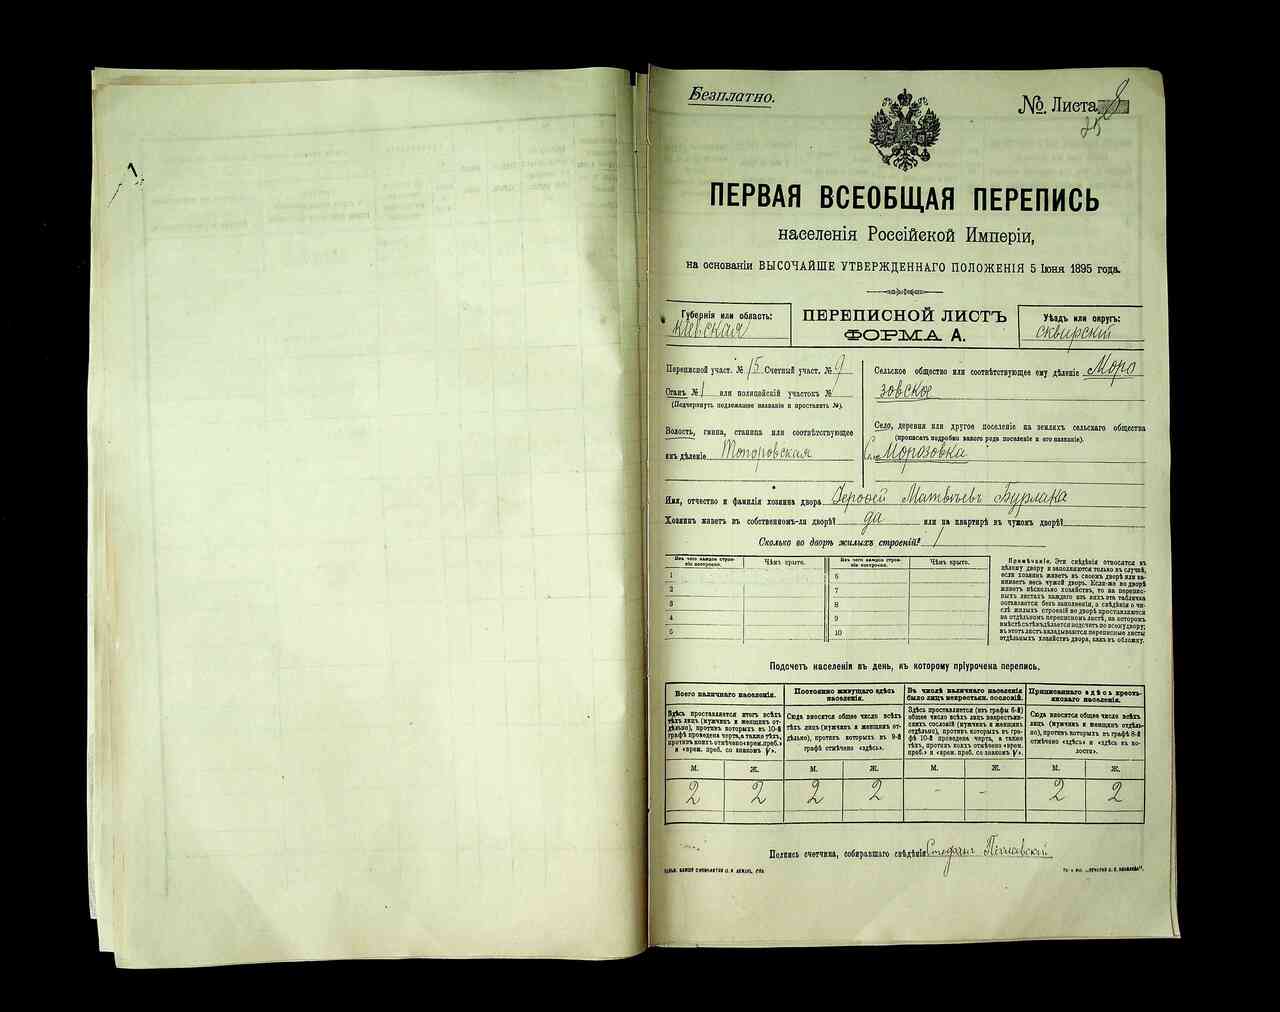 1
Безплатно.
№ Листа 8
ПЕРВАЯ ВСЕОБЩАЯ ПЕРЕПИСЬ
населенія Россійской Имперіи,
на основаніи ВЫСОЧАЙШЕ УТВЕРЖДЕННАГО ПОЛОЖЕНІЯ 5 Іюня 1895 года.
Губернія или область:
Кіевская
ПЕРЕПИСНОЙ ЛИСТЪ
ФОРМА А.
Уѣздъ или округъ:
сквирскій
Переписной участ. № 15 Счетный участ. № 9
Станъ № 1 или полицейскій участокъ №
(Подчеркнуть подлежащее названіе и проставить №).
Волость, гмина, станица или соотвѣтствующее
имъ дѣленіе Топоровская
Сельское общество или соотвѣтствующее ему дѣленіе Моро
зовское
Село, деревня или другое поселеніе на земляхъ сельскаго общества
(прописать подробно какого рода поселеніе и его названіе).
Село Морозовка
Имя, отчество и фамилія хозяина двора Ерофей Матвѣевъ Бурлака
Хозяинъ живетъ въ собственномъ-ли дворѣ? да или на квартирѣ въ чужомъ дворѣ?
Сколько во дворѣ жилыхъ строеній? 1
Изъ чего каждое строе-
ніе построено.
Чѣмъ крыто.
Изъ чего каждое строе-
ніе построено.
Чѣмъ крыто.
1
2
3
4
5
6
7
8
9
10
Примѣчаніе. Эти свѣдѣнія относятся къ
цѣлому двору и заполняются только въ случаѣ,
если хозяинъ живетъ въ своемъ дворѣ или на-
нимаетъ весь чужой дворъ. Если-же во дворѣ
живетъ нѣсколько хозяйствъ, то на перепис-
ныхъ листахъ каждаго изъ нихъ эта табличка
оставляется безъ заполненія, а свѣдѣнія о чи-
слѣ жилыхъ строеній во дворѣ проставляются
на отдѣльномъ переписномъ листѣ, на которомъ
вмѣстѣ съ тѣмъ дѣлается подсчетъ по всему двору;
въ этотъ листъ вкладываются переписные листы
отдѣльныхъ хозяйствъ двора, какъ въ обложку.
Подсчетъ населенія въ день, къ которому пріурочена перепись.
Всего наличнаго населенія.
Здѣсь проставляется итогъ всѣхъ
тѣхъ лицъ (мужчинъ и женщинъ от-
дѣльно), противъ которыхъ въ 10-й
графѣ проведена черта, а также тѣхъ,
противъ коихъ отмѣчено «врем. преб.»
и «врем. преб. со знакомъ V».
Постоянно живущаго здѣсь
населенія.
Сюда вносится общее число всѣхъ
тѣхъ лицъ (мужчинъ и женщинъ от-
дѣльно), противъ которыхъ въ 9-й
графѣ отмѣчено «здѣсь».
Въ числѣ наличнаго населенія
было лицъ некрестьян. сословій.
Здѣсь проставляется (изъ графы 6-й)
общее число всѣхъ лицъ некрестьян-
скихъ сословій (мужчинъ и женщинъ
отдѣльно), противъ которыхъ въ гра-
фѣ 10-й проведена черта, а также
тѣхъ, противъ коихъ отмѣчено «врем.
преб.» и «врем. преб. со знакомъ V».
Приписаннаго здѣсь кресть-
янскаго населенія.
Сюда вносится общее число всѣхъ
лицъ (мужчинъ и женщинъ отдѣль-
но), противъ которыхъ въ графѣ 8-й
отмѣчено «здѣсь» и «здѣсь въ во-
лости».
М. Ж. М. Ж. М. Ж. М. Ж.
2 2 2 2 - - 2 2
Подпись счетчика, собиравшаго свѣдѣнія Стефанъ